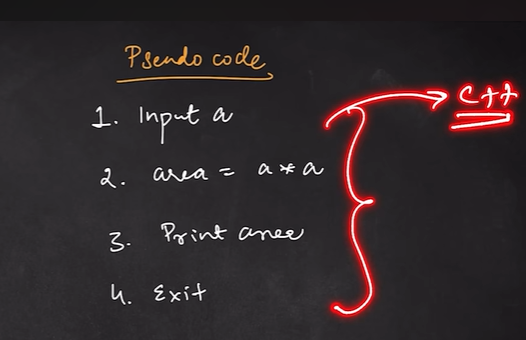 Pseudo code
C++
1. Input a
2. area = a * a
3. Print area
4. Exit